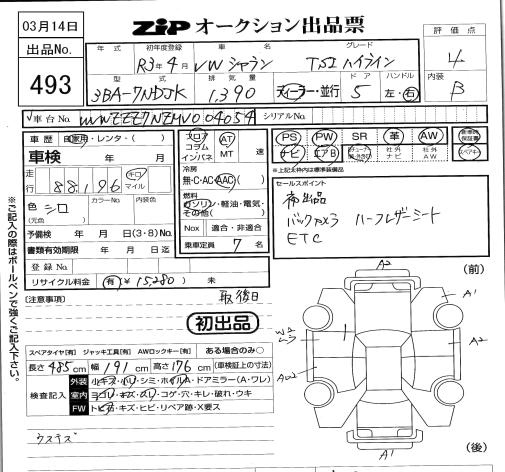 03月14日
ZiP オークション出品票
出品No.
493
年式 初年度登録 車名 グレード
R3年4月 VWシャラン TSIハイライン
型式 排気量 ドア ハンドル
3BA-7NDJK 1,390 ディーラー・並行 5 左・右
評価点
4
内装
B
車台No. WVWZZZ7NZMV004054 シリアルNo.
車歴 自家用・レンタ・( )
車検 年 月
走行 88,196 キロ マイル
色 シロ (元色) カラーNo. 内装色
予備検 年 月 日(3・8)No.
書類有効期限 年 月 日迄
登録No.
リサイクル料金 有 ¥15,280 未
フロア コラム インパネ
AT MT 速
冷房
無・C・AC・AAC
燃料
ガソリン・軽油・電気・その他( )
Nox 適合・非適合
乗車定員 7 名
PS PW SR 革 AW
ナビ エアB 社外ナビ 社外AW
※上記太枠内は標準装備品
セールスポイント
初出品
バックカメラ ハーフレザーシート
ETC
※ご記入の際はボールペンで強くご記入下さい。
(注意事項) 取後日
初出品
スペアタイヤ[有] ジャッキ工具[有] AWロックキー[有] ある場合のみ○
長さ485cm 幅191cm 高さ176cm (車検証上の寸法)
検査記入
外装 小キズ・小凹・シミ・ホイルA・ドアミラー(A・ワレ)
室内 ヨゴレ・キズ・スリ・コゲ穴・キレ・破れ・ウキ
FW トビ石・キズ・ヒビ・リペア跡・X要ス
ウステズ
(前)
A2
A1
A2
A1
(後)